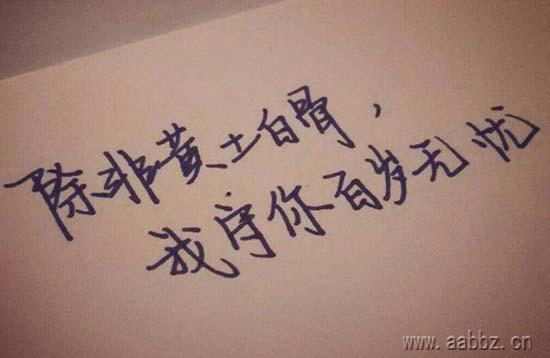 除非黄土白骨,
我守你百岁无忧
www.aabbz.cn